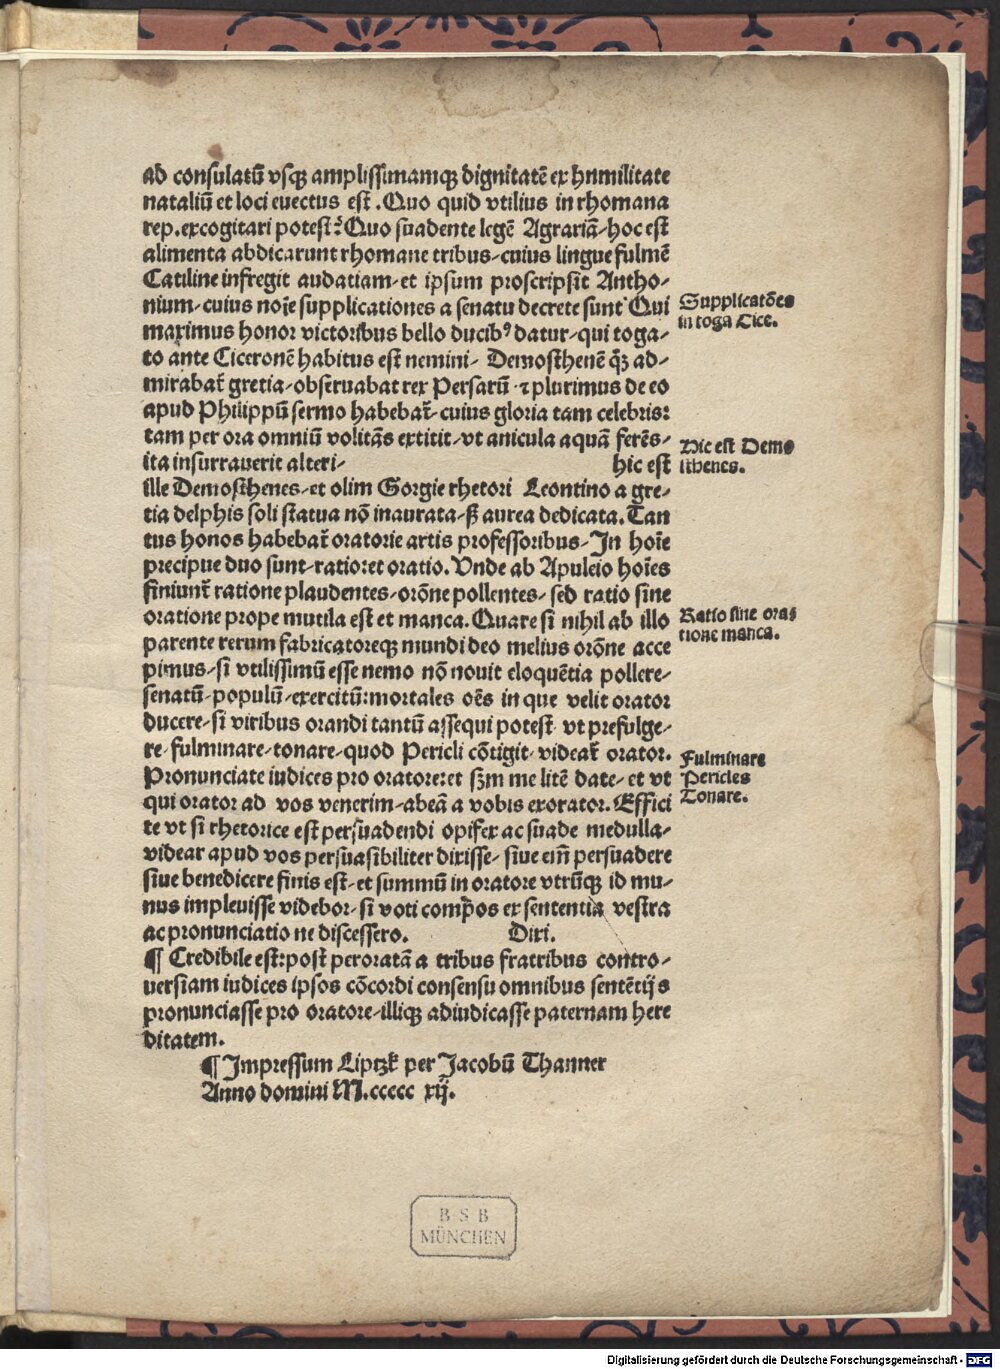 ad consulatū vsqꝫ amplissimamqꝫ dignitatē ex hnmilitate
nataliū et loci euectus est . Quo quid vtilius in rhomana
rep. excogitari potest: Quo suadente legē Agrariā-hoc est
alimenta abdicarunt rhomane tribus-cuius lingue fulmē
Catiline infregit audatiam-et ipsum proscripsit Antho-
nium-cuius noīe supplicationes a senatu decrete sunt Qui
maximus honor victoribus bello ducibꝰ datur-qui toga-
to ante Ciceronē habitus est nemini- Demosthenē qꝫ ad-
mirabat̄ gretia-obseruabat rex Persarū ⁊ plurimus de eo
apud Philippū sermo habebat̄-cuius gloria tam celebris:
tam per ora omniū volitās extitit-vt anicula aquā ferēs-
ita insurrauerit alteri- hic est
ille Demosthenes-et olim Gorgie rhetori Leontino a gre-
tia delphis soli statua nō inaurata-sꝫ aurea dedicata. Tan
tus honos habebat̄ oratorie artis professoribus-In hoīe
precipue duo sunt-ratio:et oratio. Vnde ab Apuleio hoīes
finiunt̄ ratione plaudentes-orōne pollentes-sed ratio sine
oratione prope mutila est et manca. Quare si nihil ab illo
parente rerum fabricatoreqꝫ mundi deo melius orōne acce
pimus-si vtilissimū esse nemo nō nouit eloquētia pollere-
senatū-populū-exercitū:mortales oēs in que velit orator
ducere-si viribus orandi tantū assequi potest vt prefulge-
re-fulminare-tonare-quod Pericli cōtigit-videat̄ orator.
Pronunciate iudices pro oratore:et sꝫm me litē date-et vt
qui orator ad vos venerim-abeā a vobis exorator. Effici
te vt si rhetorice est persuadendi opifex ac suade medulla-
videar apud vos persuasibiliter dixisse-siue em̄ persuadere
siue benedicere finis est-et summū in oratore vtrūqꝫ id mu-
nus impleuisse videbor-si voti compos ex sententia vestra
ac pronunciatio ne discessero. Dixi.
¶ Credibile est:post peroratā a tribus fratribus contro-
uersiam iudices ipsos cōcordi consensu omnibus sentētijs
pronunciasse pro oratore-illiqꝫ adiudicasse paternam here
ditatem.
¶ Impressum Liptzk per Jacobū Thanner
Anno domini M.ccccc xij.
Supplicatōes
in toga Cice.
Hic est Demo
sthenes.
Ratio sine ora
tione manca.
Fulminare
Pericles
Tonare.
B S B
MÜNCHEN
Digitalisierung gefördert durch die Deutsche Forschungsgemeinschaft - DFG